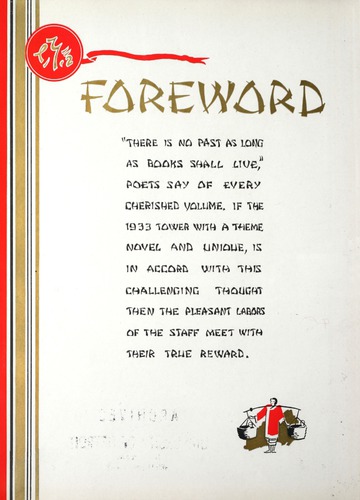 FOREWORD
"THERE IS NO PAST AS LONG
AS BOOKS SHALL LIVE,"
POETS SAY OF EVERY
CHERISHED VOLUME. IF THE
1933 TOWER WITH A THEME
NOVEL AND UNIQUE, IS
IN ACCORD WITH THIS
CHALLENGING THOUGHT
THEN THE PLEASANT LABORS
OF THE STAFF MEET WITH
THEIR TRUE REWARD.